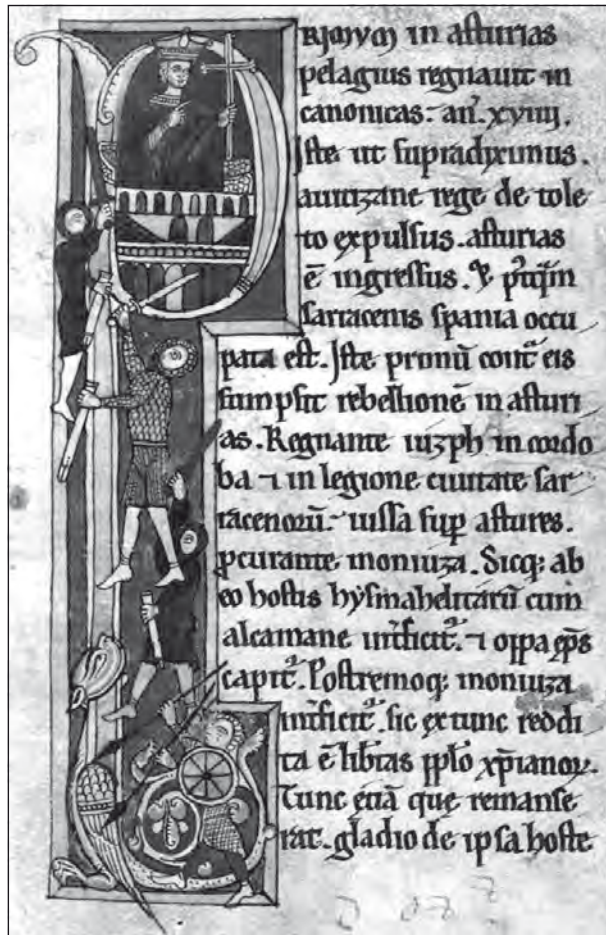 PRIMVM in asturias
pelagius regnauit in
canonicas. an̄. xviiij.
Iste ut supradiximus.
auitizane rege de tole
to expulsus. asturias
ē ingressus. & p̄tq̄m
sarracenis spania occu
pata est. Iste primū cont̄ eis
sumpsit rebellionē in asturi
as. Regnante iuzph in cordo
ba ⁊ in legione ciuitate sar
racenorū. iussa sup astures.
pcurante moniuza. Sicq; ab
eo hostis hysmahelitarū cum
alcamane int̄ficit̄. ⁊ oppa ep̄s
capit̄. Postremoq; moniuza
int̄ficit̄. sic extunc reddi
ta ē lib̄tas pp̄lo xp̄ianoꝝ.
Tunc etiā que remanse
rat. gladio de ipsa hoste